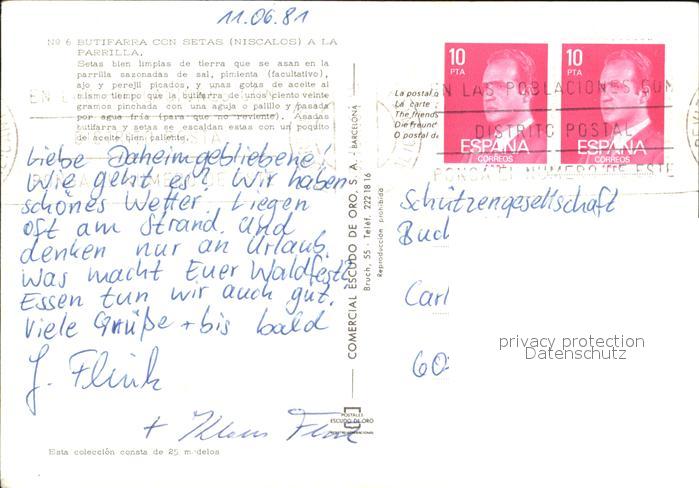 11.06.81
Nº 6 BUTIFARRA CON SETAS (NISCALOS) A LA
PARRILLA.
Setas bien limpias de tierra que se asan en la
parrilla sazonadas de sal, pimienta (facultativo),
ajo y perejil picados, y unas gotas de aceite al
mismo tiempo que la butifarra de unos ciento veinte
gramos pinchada con una aguja o palillo y pasada
por agua fría (para que no reviente). Asadas
butifarra y setas se escaldan estas con un poquito
de aceite bien caliente.
Liebe Daheimgebliebene!
Wie geht es? Wir haben
schönes Wetter. Liegen
oft am Strand. Und
denken nur an Urlaub.
Was macht Euer Waldfest?
Essen tun wir auch gut.
Viele Grüße + bis bald
J. Flink
+ Klaus
Esta colección consta de 25 modelos
COMERCIAL ESCUDO DE ORO, S. A. - BARCELONA
Bruch, 55 - Teléf. 222 18 16
Reproducción prohibida
POSTALES
ESCUDO DE ORO
La postal
La carte
The friends
Die freund
O postal d
10
PTA
ESPAÑA
CORREOS
10
PTA
ESPAÑA
CORREOS
EN LAS POBLACIONES CON
DISTRITO POSTAL
PONGA EL NUMERO DE ESTE
Schützengesellschaft
Buch
Carl
60
privacy protection
Datenschutz